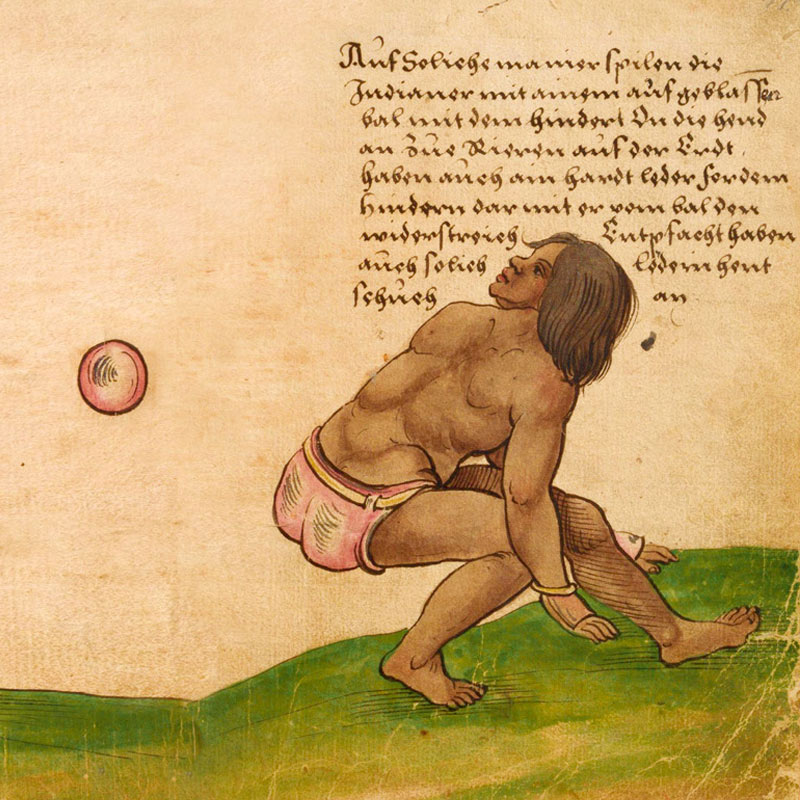 Auf Soliche manier spilen die
Indianer mit ainem aufgeblassen
bal mit dem hindert On die hend
an Zue Rieren auf der Erdt
haben auch ain hardt leder for dem
hindern dar mit er vom bal den
widerstreich Entpfacht haben
auch solich ledern hent
schuech an